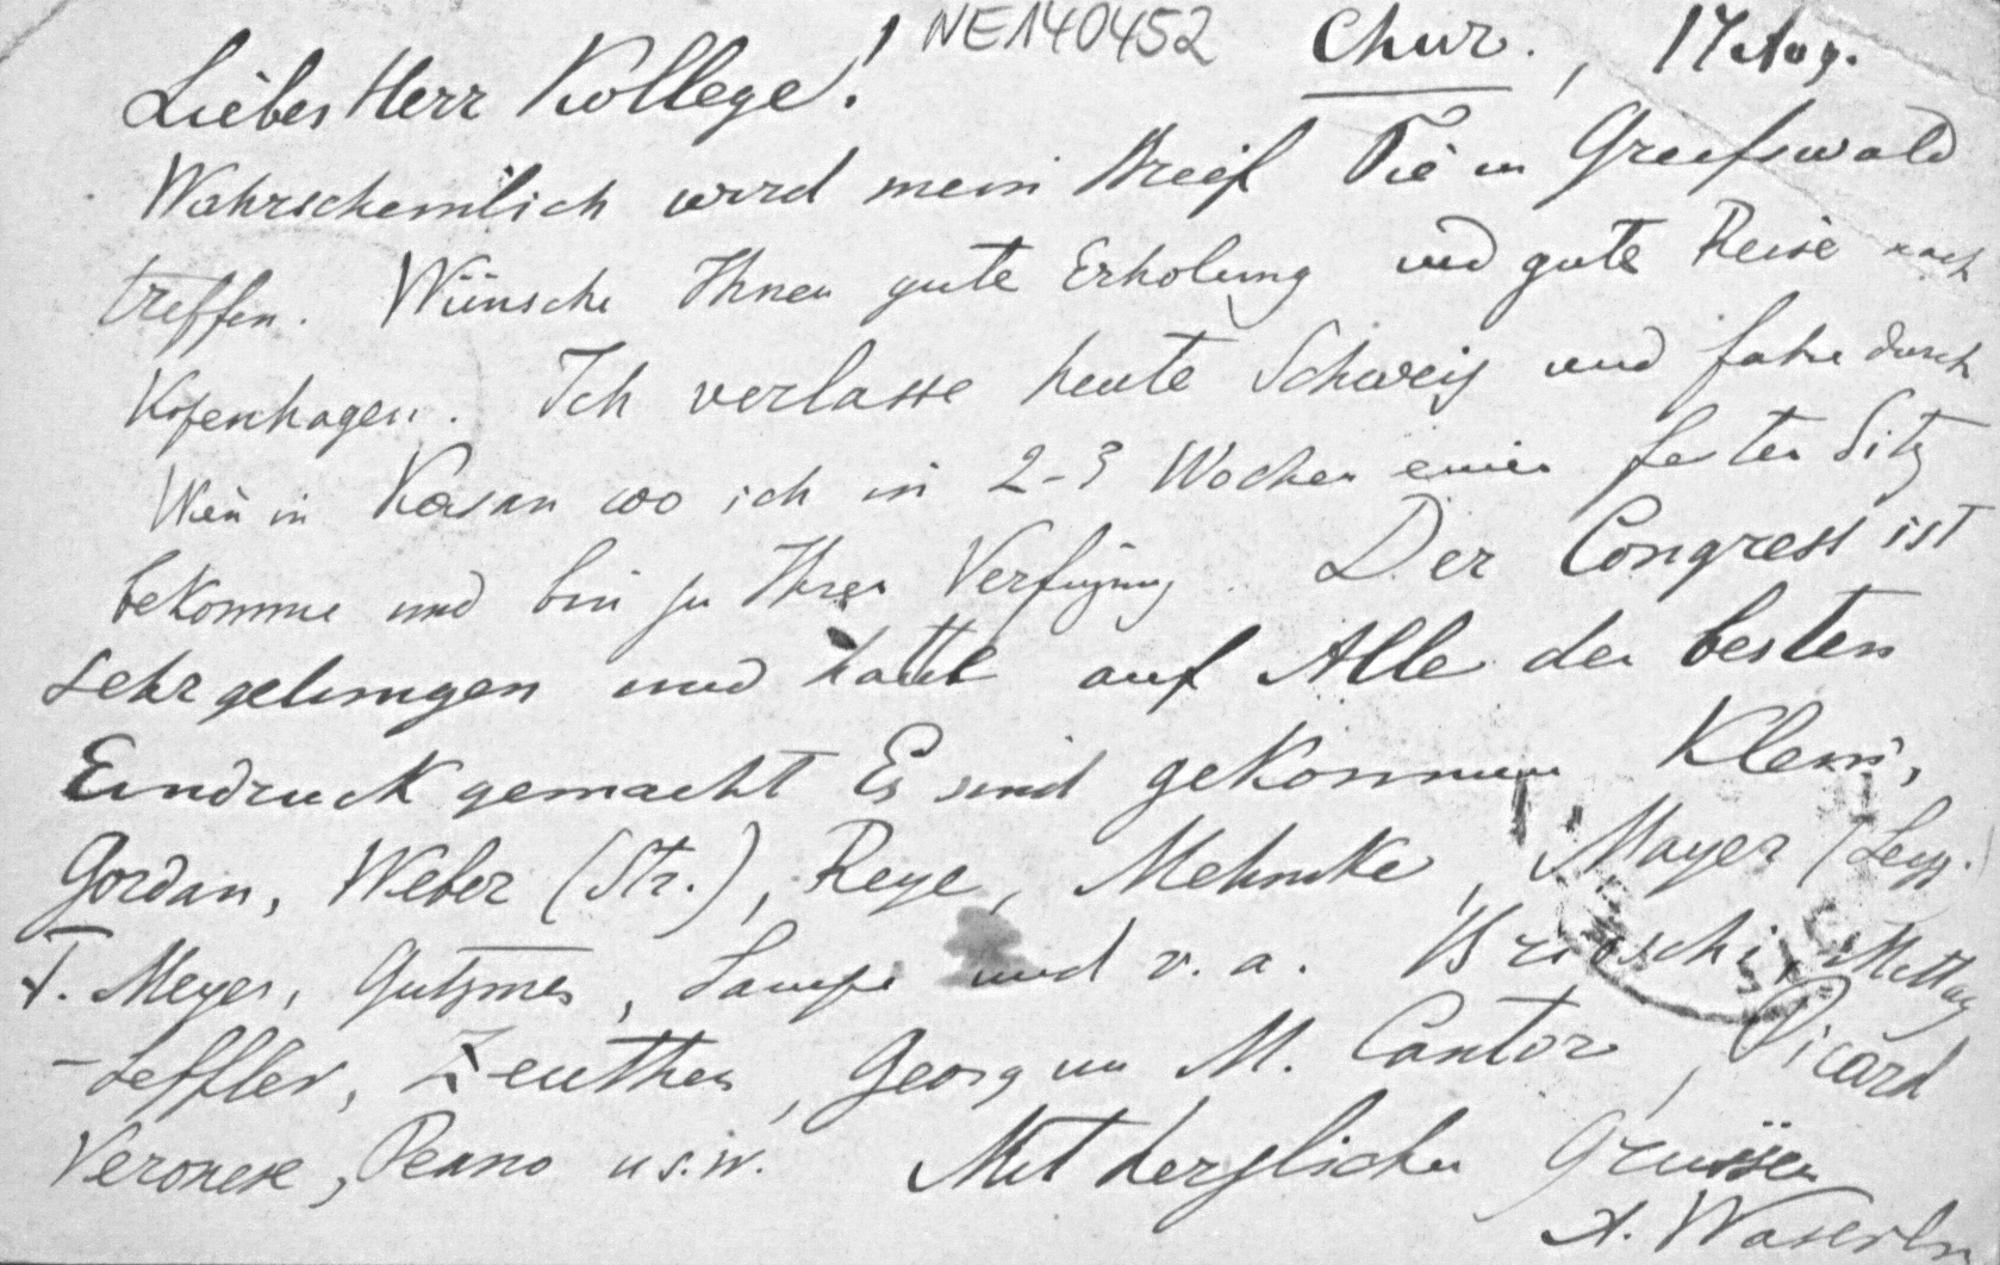 NE140452 Chur., 17 Aug.
Lieber Herr Kollege!
Wahrscheinlich wird mein Brief Sie in Greifswald
treffen. Wünsche Ihnen gute Erholung und gute Reise nach
Kopenhagen. Ich verlasse heute Schweiz und fahre durch
Wien in Kasan wo ich in 2-3 Wochen einen festen Sitz
bekomme und bin zu Ihrer Verfügung. Der Congress ist
sehr gelungen und hatte auf Alle den besten
Eindruck gemacht Es sind gekommen Klein,
Gordan, Weber (Str.), Reye, Mehmke, Mayer (Leipz.)
F. Meyer, Gutzmer, Lampe und v. a. Brioschi, Mittag
-Leffler, Zeuthen, Georg un M. Cantor, Picard
Veronese, Peano u.s.w. Mit herzlichen Grüssen
A. Wasserln